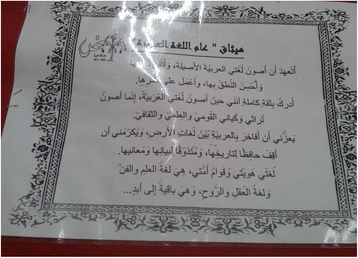 ميثاق " عام اللغة العربية "
أتعهد أن أصون لغتي العربيّة الأصيلة،
وأحسن النّطق بها، وأعمل على
أدرك بثقةٍ كاملةٍ أنني حين أصون لغتي العربيّة، إنّما أصون
تراثي وكياني القومي والعلمي والثقافيّ.
يعزّني أن أفاخر بالعربيّة بين لغات الأرض، ويكرّمني أن
أقف حافظًا لتاريخها، ومتذوّقًا لبيانها ومعانيها.
لغتي هويّتي وقوام أمّتي، هي لغة العلم والفنّ
ولغة العقل والرّوح، وهي باقيةٌ إلى أبدٍ...